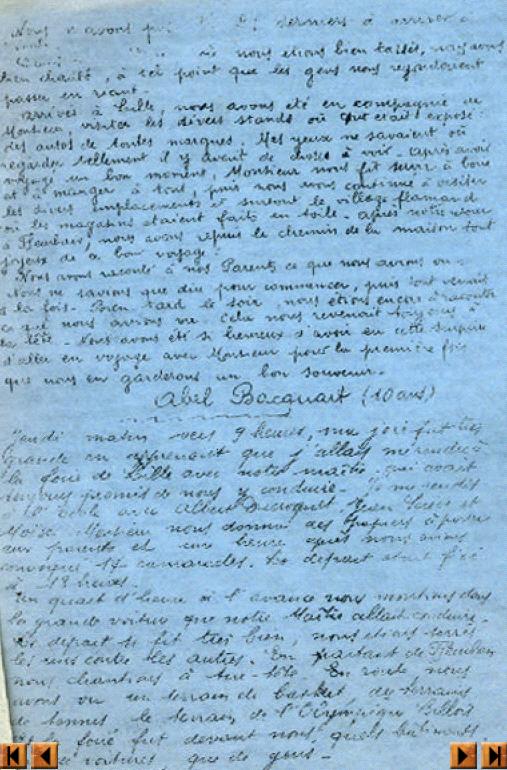 Nous n'avons pas derniers à arriver à
nous étions bien tassés, nous avons
bien chanté, à tel point que les gens nous regardaient
passer en riant.
Arrivés à Lille, nous avons été en compagnie de
Monsieur, visiter les divers stands où était exposé
des autos de toutes marques. Mes yeux ne savaient où
regarder tellement il y avait de choses à voir. Après avoir
voyagé un bon moment, Monsieur nous fit servir à boire
et à manger à tous, puis nous avons continué à visiter
les divers emplacements et surtout le village flamand
où les magasins étaient faits en toile. Après notre retour
à Fleurbaix, nous avons repris le chemin de la maison tout
joyeux de ce bon voyage.
Nous avons raconté à nos Parents ce que nous avions vu.
Nous ne savions que dire pour commencer, puis tout venait
à la fois. Bien tard le soir, nous étions encore à raconter
ce que nous avions vu. Cela nous revenait toujours à
la tête. Nous avons été si heureux d'avoir eu cette surprise
d'aller en voyage avec Monsieur pour la première fois
que nous en garderons un bon souvenir.
Abel Bacquart (10 ans)
Jeudi matin vers 9 heures, ma joie fut très
grande en apprenant que j'allais me rendre à
la foire de Lille avec notre maître qui avait
toujours promis de nous y conduire. Je me rendis
à l'école avec Albert Ducroquet, Jean et
Moïse. Monsieur nous donna des papiers à porter
aux parents et une heure après nous avions
convoqué 17 camarades. Le départ était fixé
à 13 heures.
Un quart d'heure à l'avance nous montions dans
la grande voiture que notre Maître allait conduire.
Le départ se fit très bien, nous étions serrés
les uns contre les autres. En partant de Fleurbaix
nous chantions à tue-tête. En route nous
avons vu un terrain de basket, des terrains
de tennis, le terrain de l'Olympique Lillois
la foire fut devant nous quels bâtiments
voitures, que de gens.